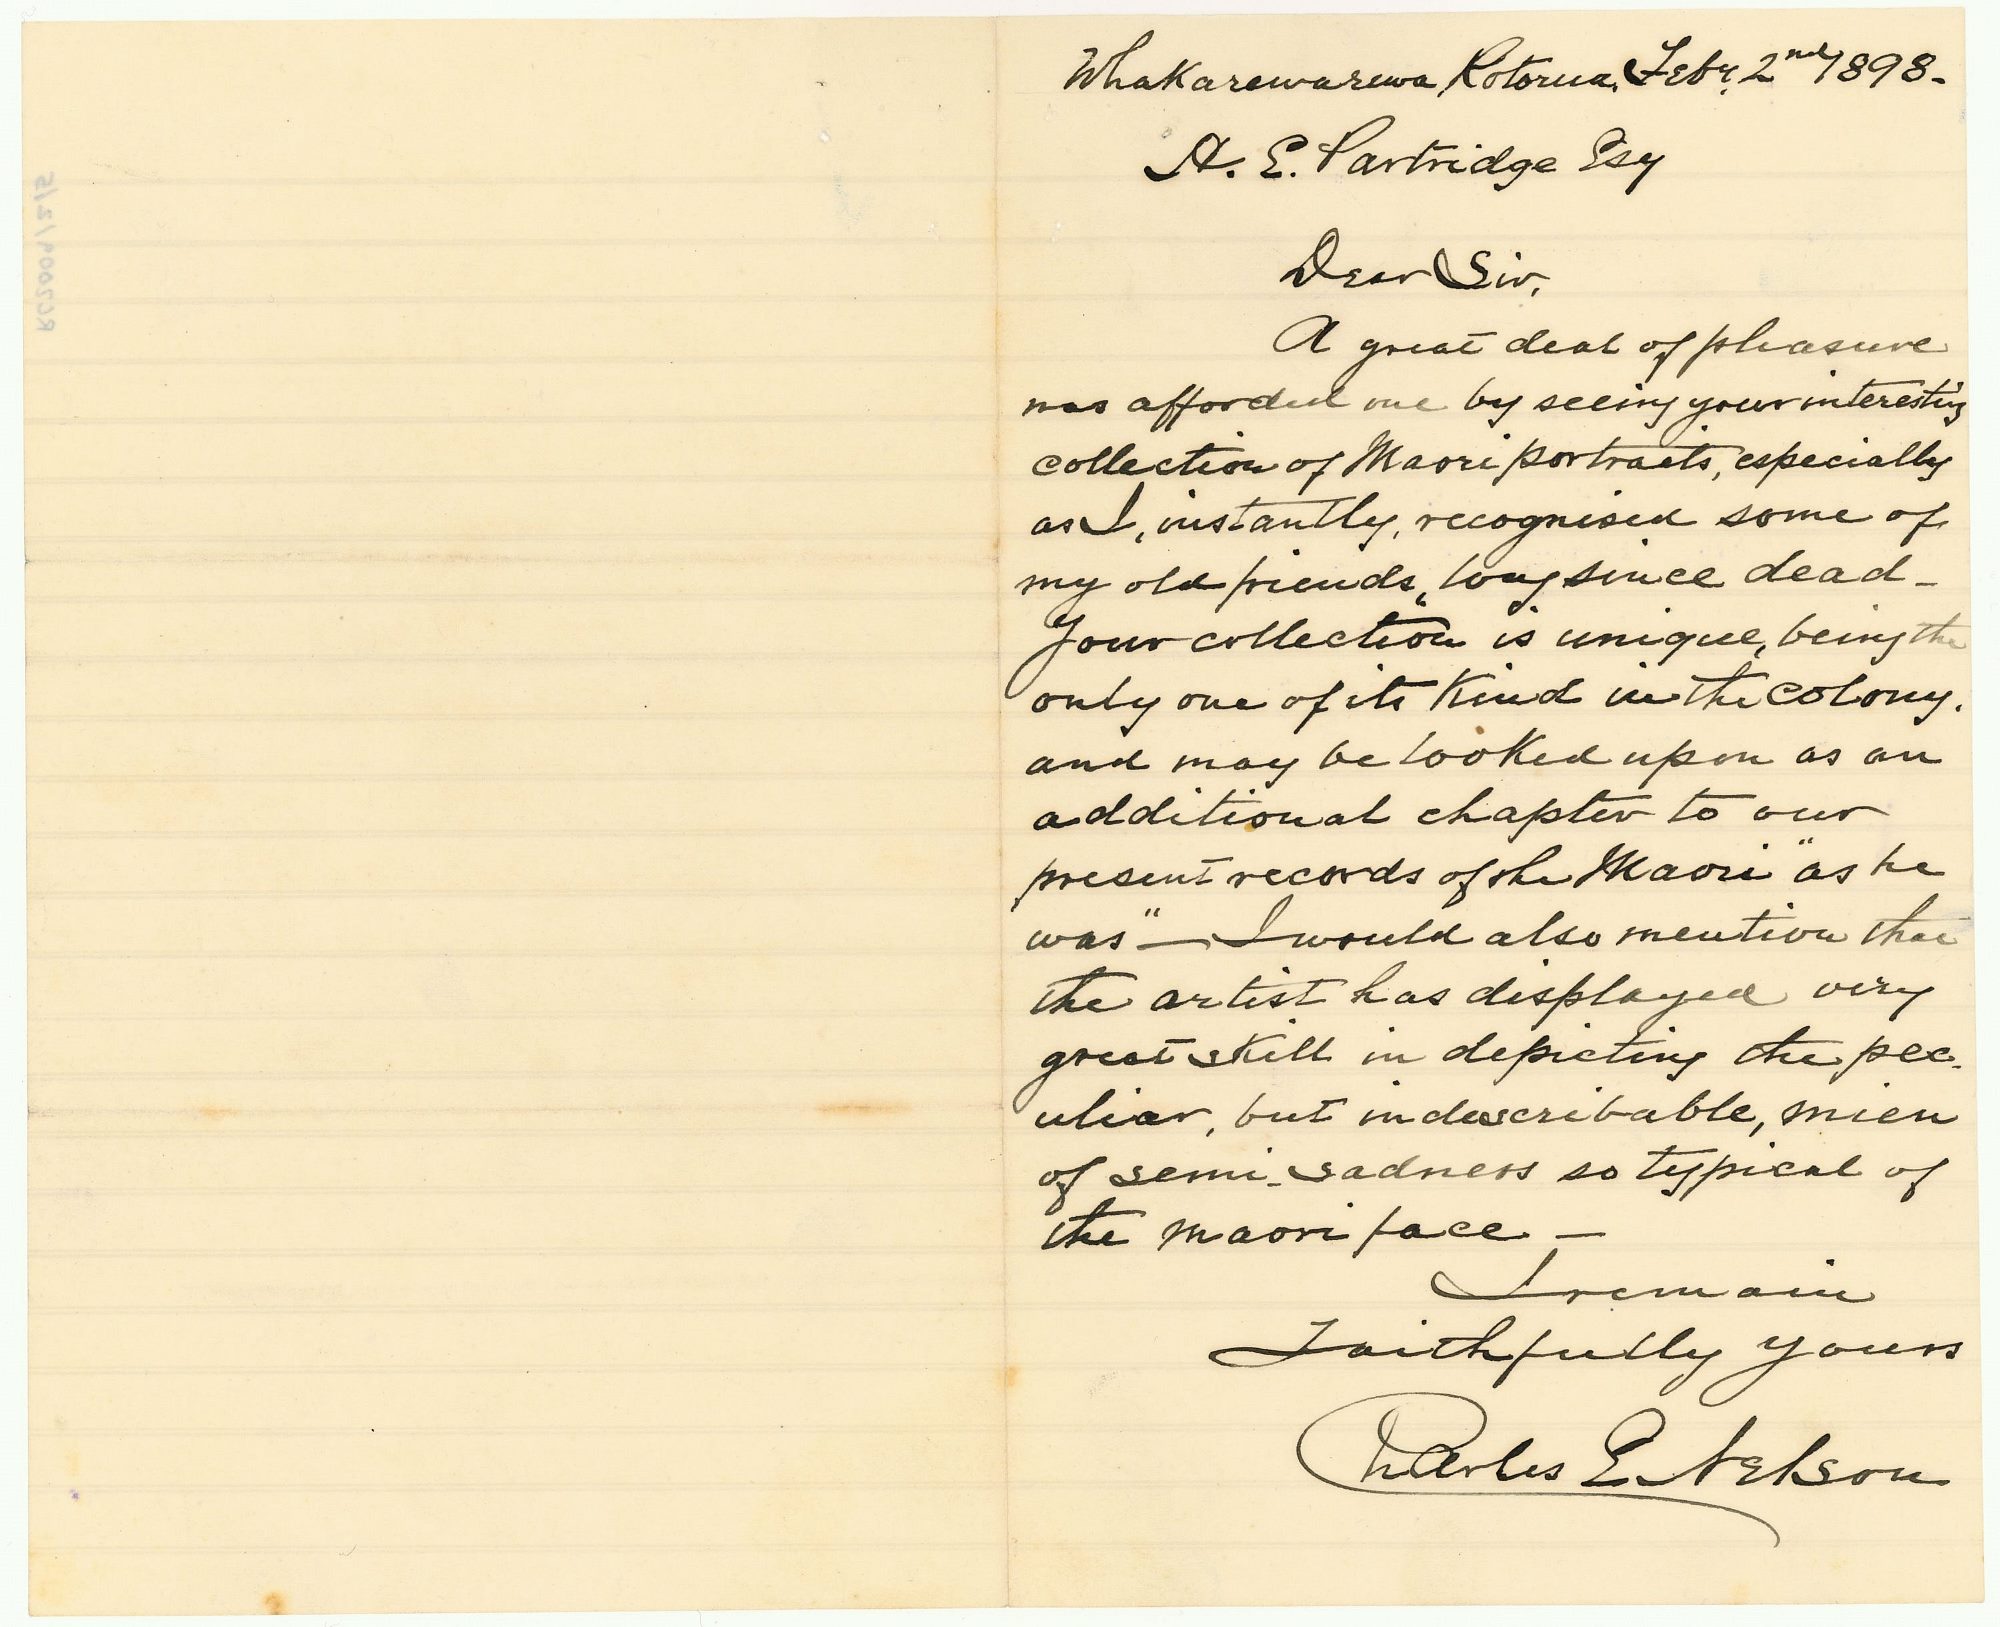 Whakarewarewa, Rotorua. Feby. 2nd 1898-
H. E. Partridge Esq
Dear Sir,
A great deal of pleasure
was afforded me by seeing your interesting
collection of Maori portraits, especially
as I, instantly, recognised some of
my old friends, long since dead -
Your collection is unique, being the
only one of its kind in the colony.
and may be looked upon as an
additional chapter to our
present records of the Maori "as he
was" - I would also mention that
the artist has displayed very
great skill in depicting the pec-
uliar, but indescribable, mien
of semi-sadness so typical of
the maori face -
I remain
Faithfully yours
Charles E Nelson
RC2004/2/5